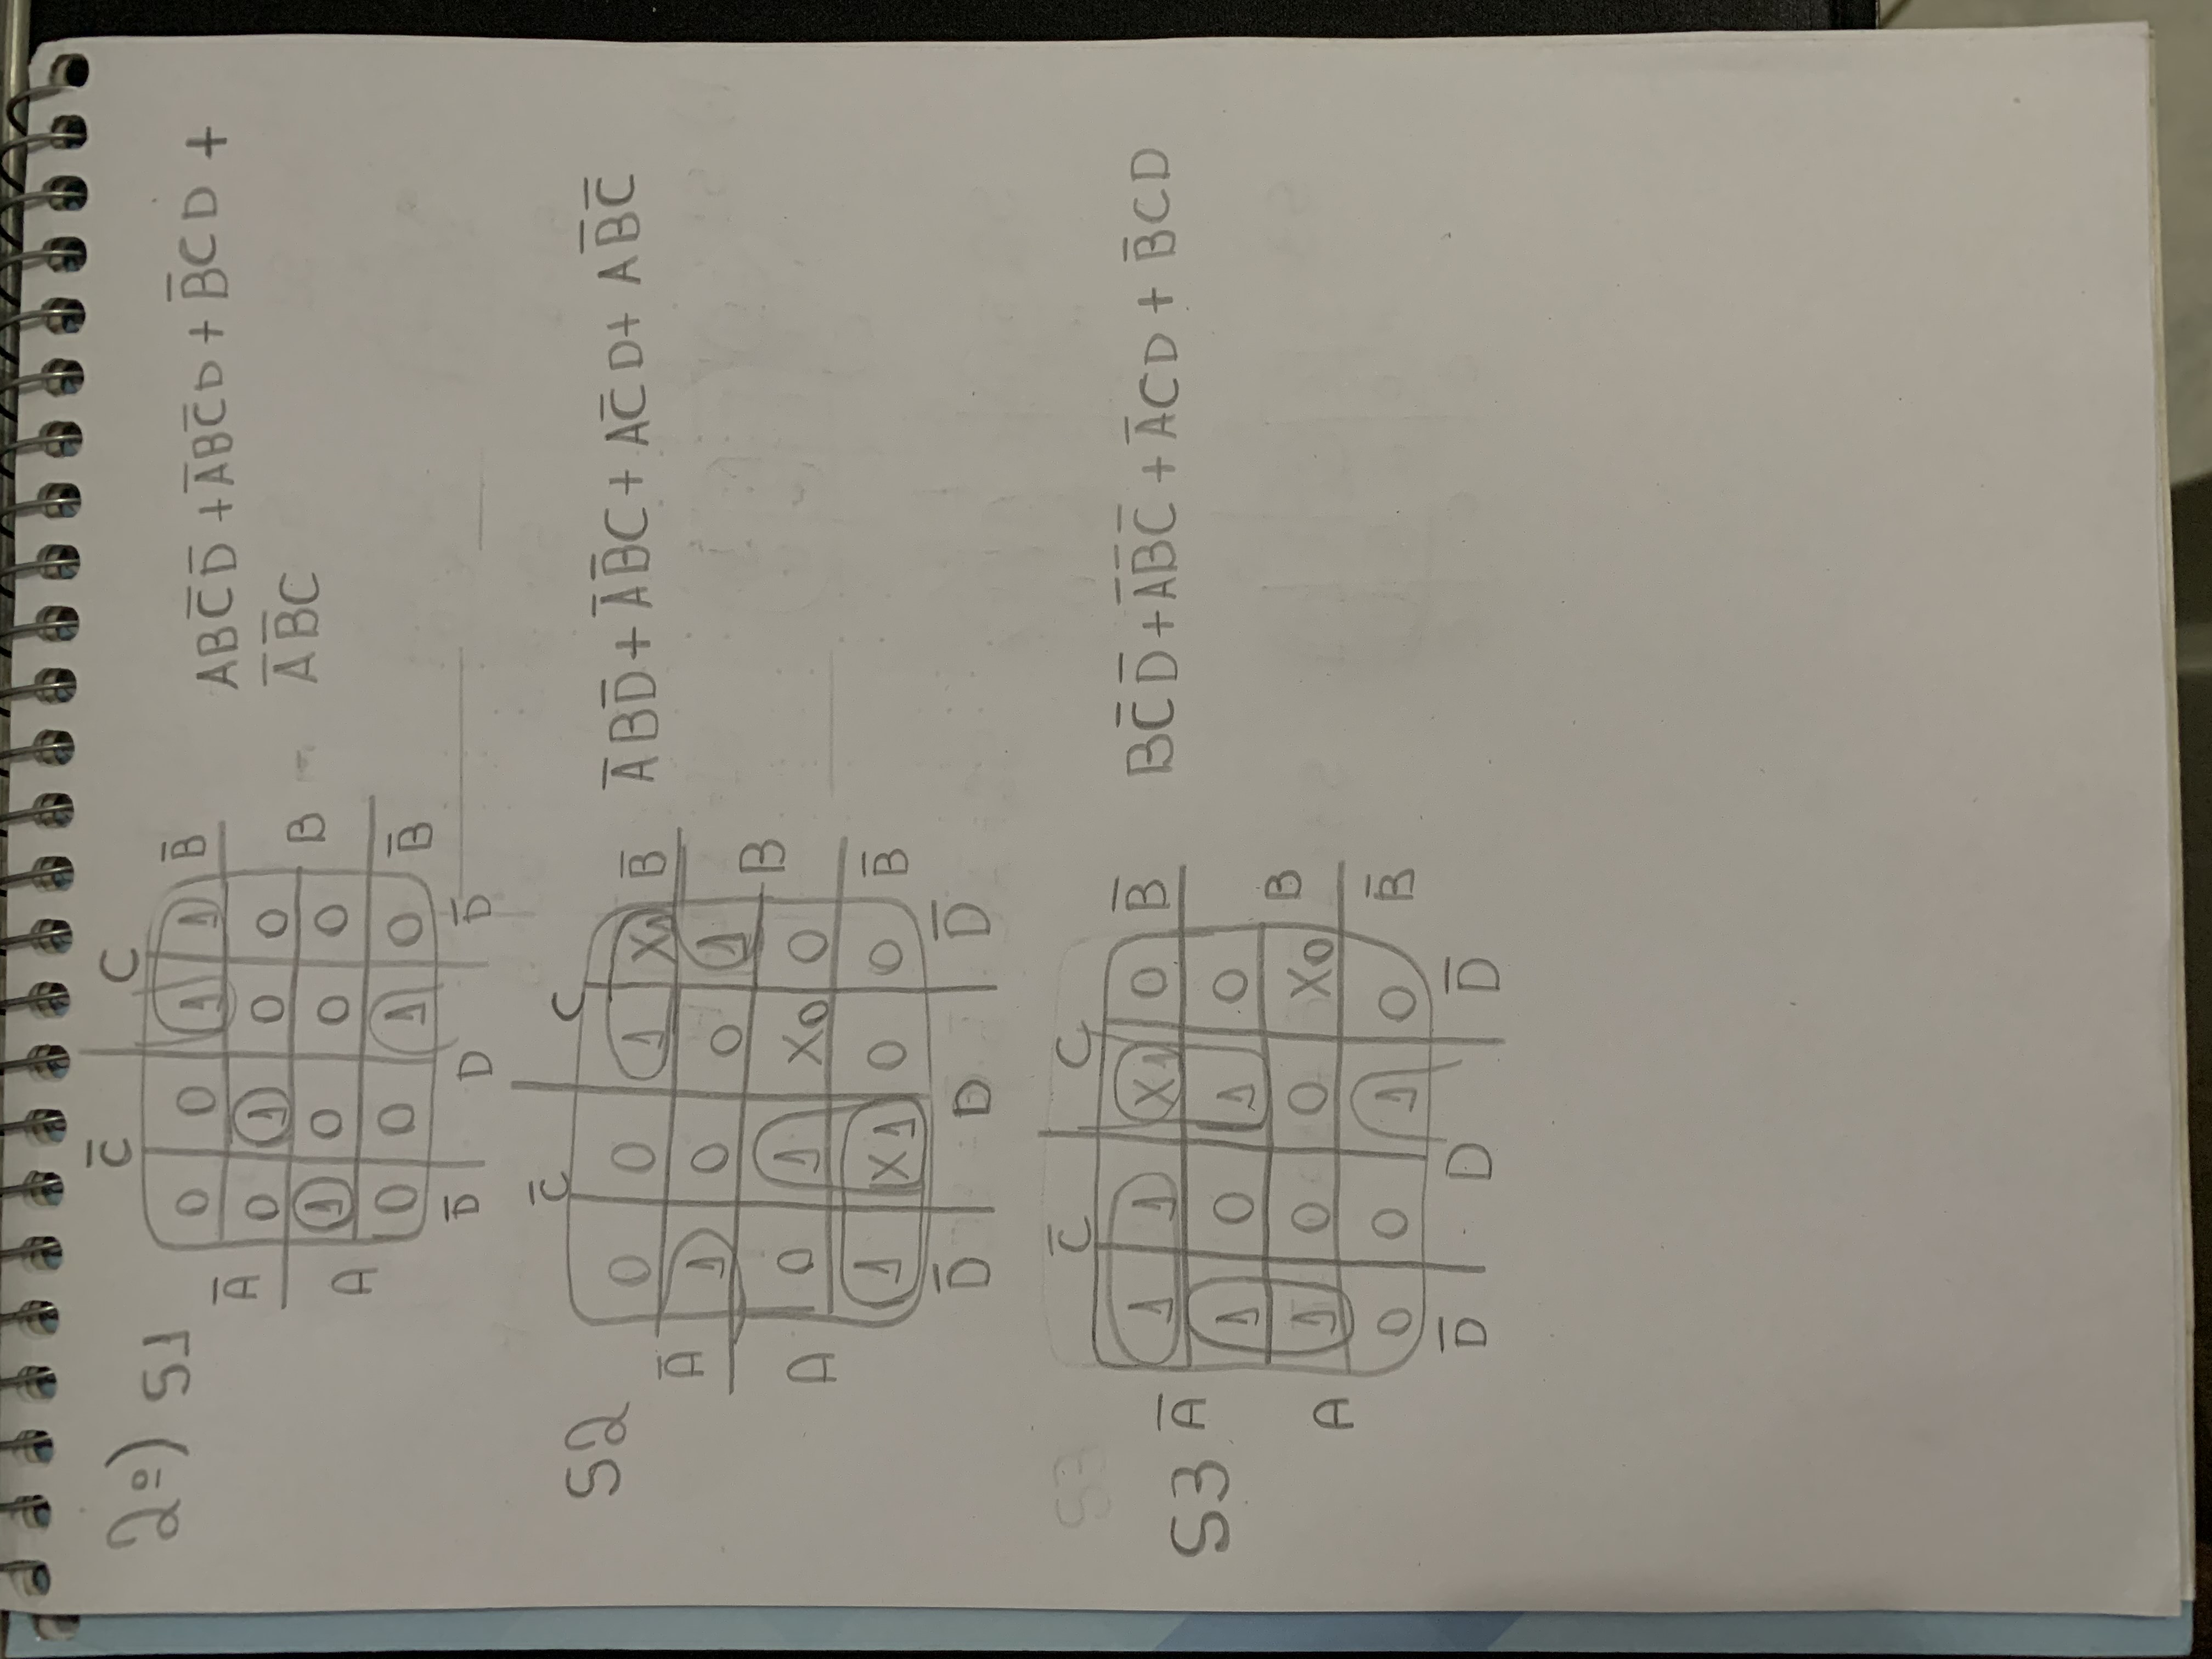 2º) S1
C̅ C
A̅ 0 0 1 1 B̅
0 1 0 0
A 1 0 0 0 B
0 0 1 0 B̅
D̅ D D̅
ABC̅D̅ + A̅BC̅D + B̅CD +
A̅B̅C
S2
C̅ C
0 0 1 X1 B̅
A̅ 1 0 0 1
A 0 1 X0 0 B
1 X1 0 0 B̅
D̅ D D̅
A̅BD̅ + A̅B̅C + AC̅D + AB̅C̅
S3
C̅ C
S3 A̅ 1 1 X1 0 B̅
1 0 1 0
A 1 0 0 X0 B
0 0 1 0 B̅
D̅ D D̅
BC̅D̅ + A̅B̅C̅ + A̅CD + B̅CD